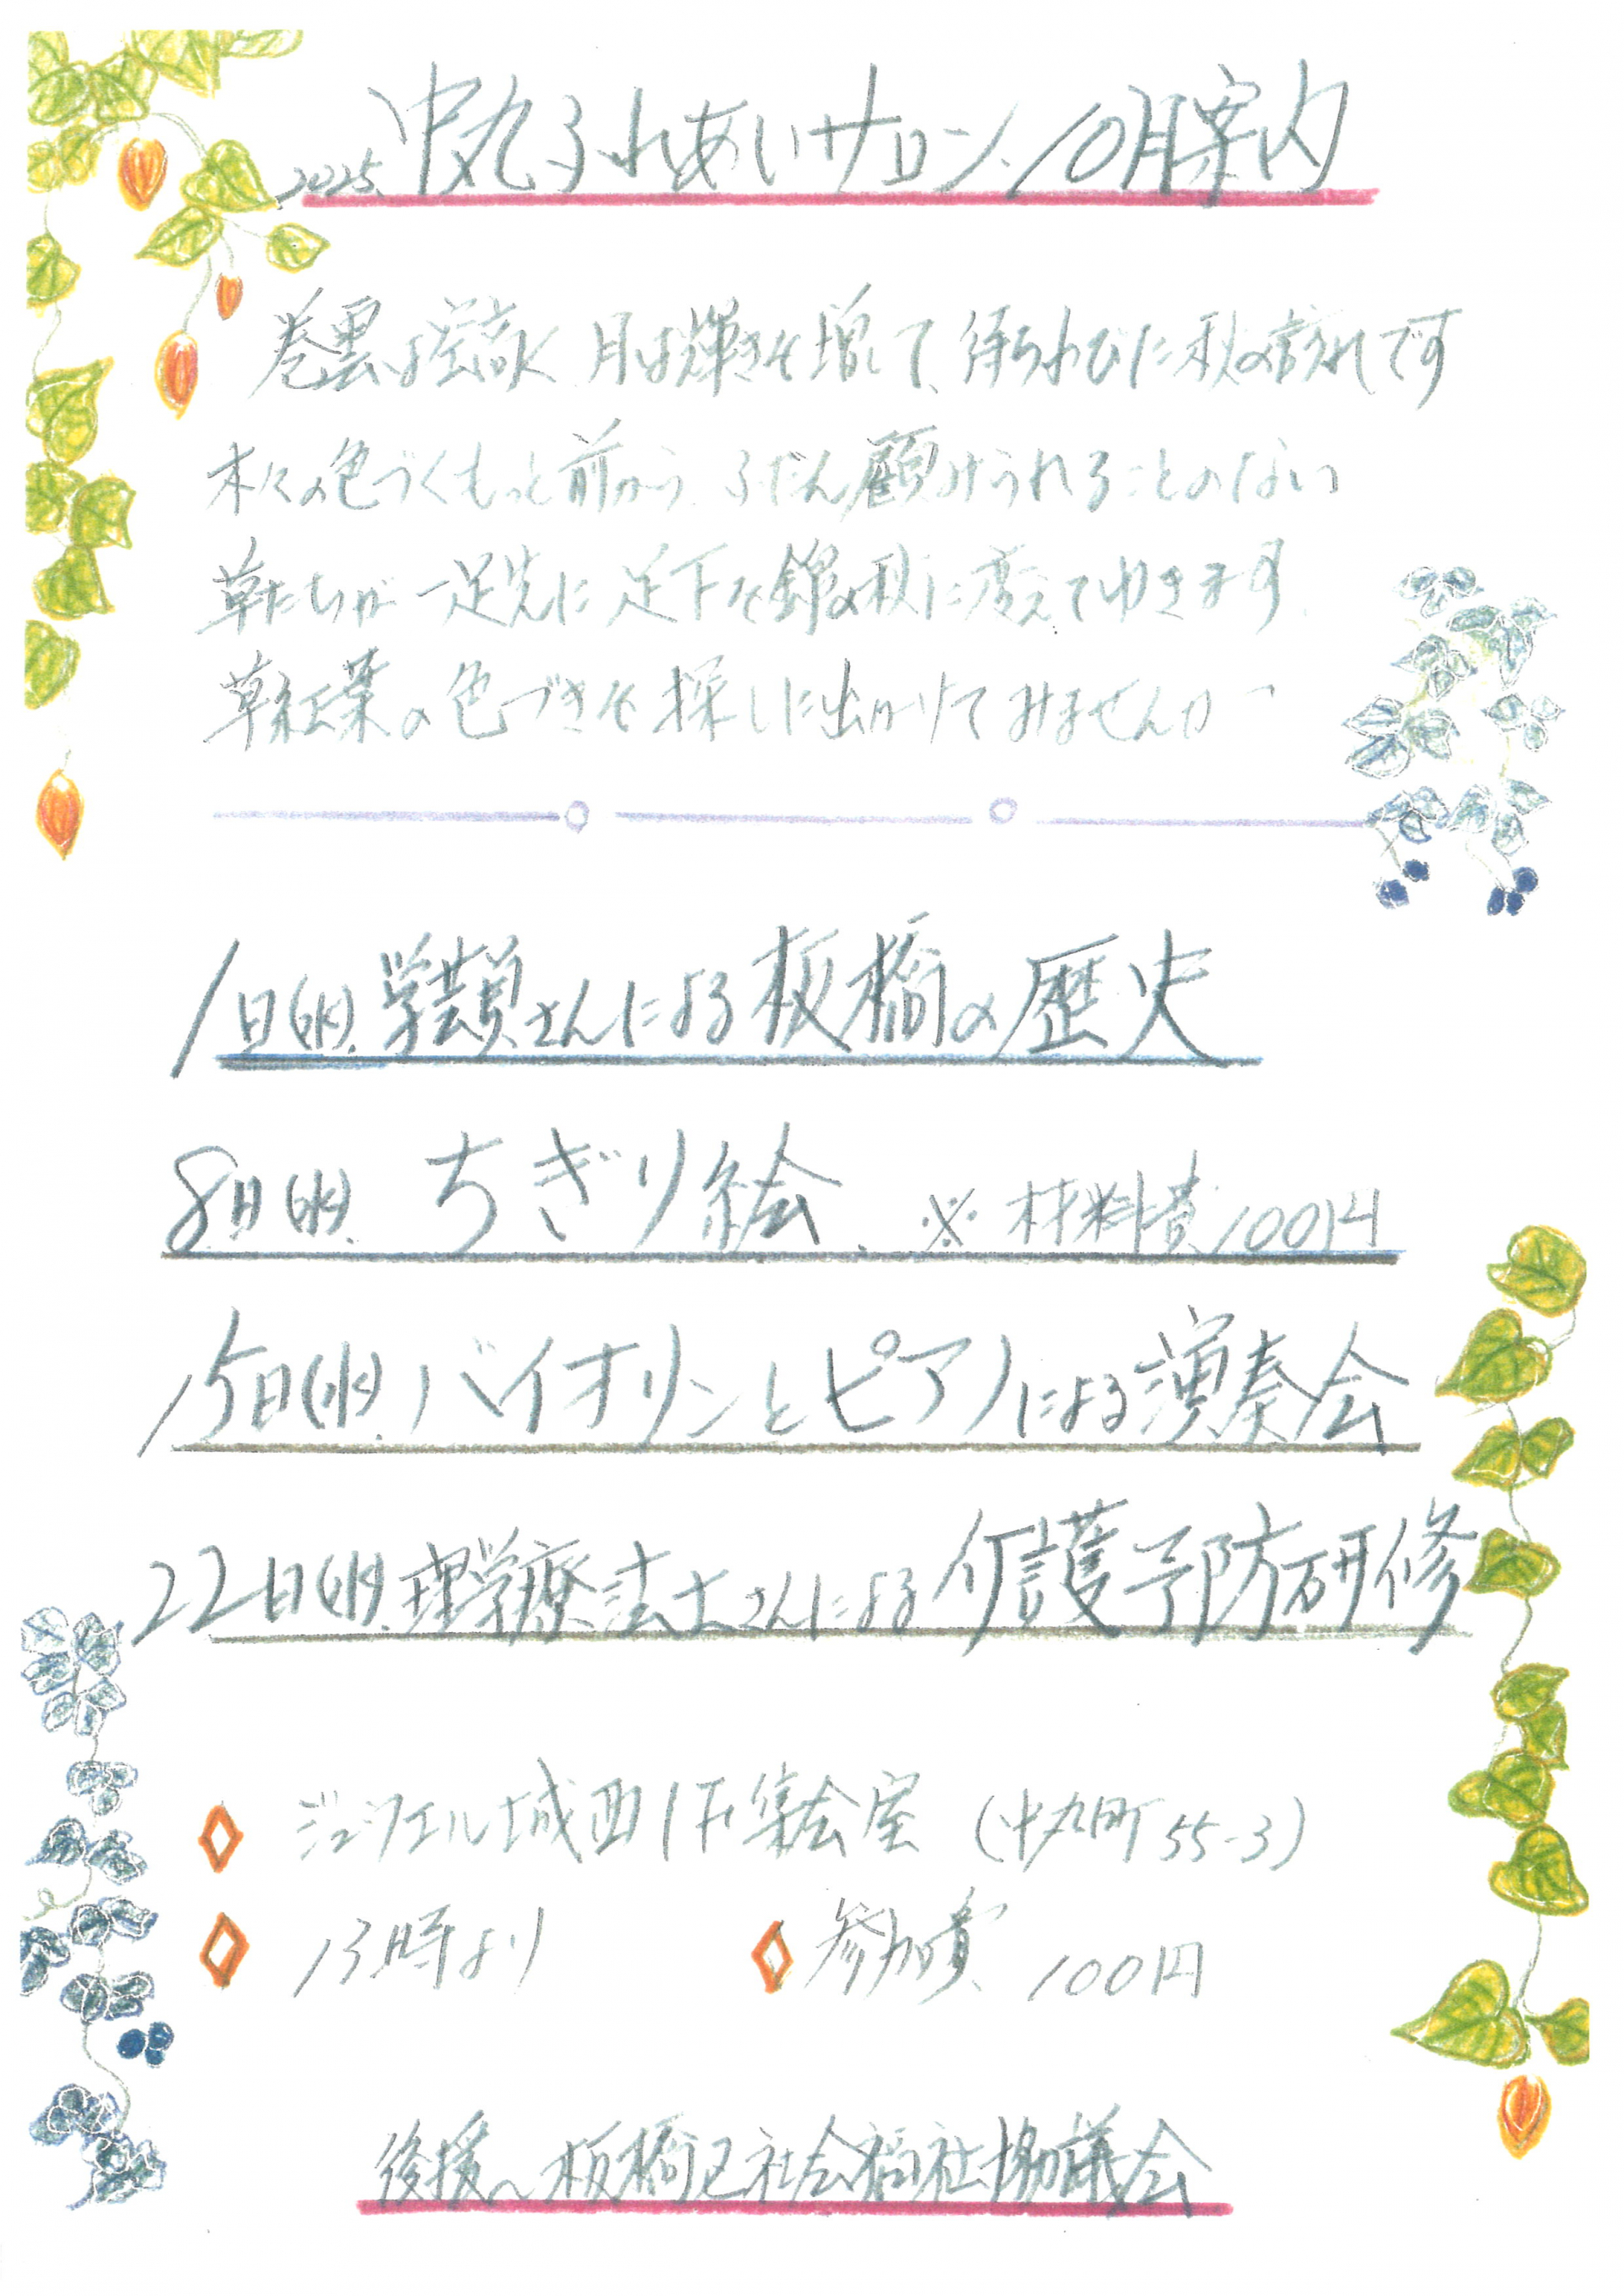 2025. 中丸ふれあいサロン.10月案内
巻雲は空高く、月は輝きを増して、待ちわびた秋の訪れです
木々の色づくもっと前から、ふだん顧みられることのない
草たちが一足先に足下を錦の秋に変えてゆきます.
草紅葉の色づきを探しに出かけてみませんかー
1日(水).学芸員さんによる板橋の歴史
8日(水). ちぎり絵. ※材料費100円
15日(水).バイオリンとピアノによる演奏会
22日(水).理学療法士さんによる介護予防研修
ジェシエル城西1F集会室 (中丸町55-3)
13時より 参加費 100円
後援〜板橋区社会福祉協議会